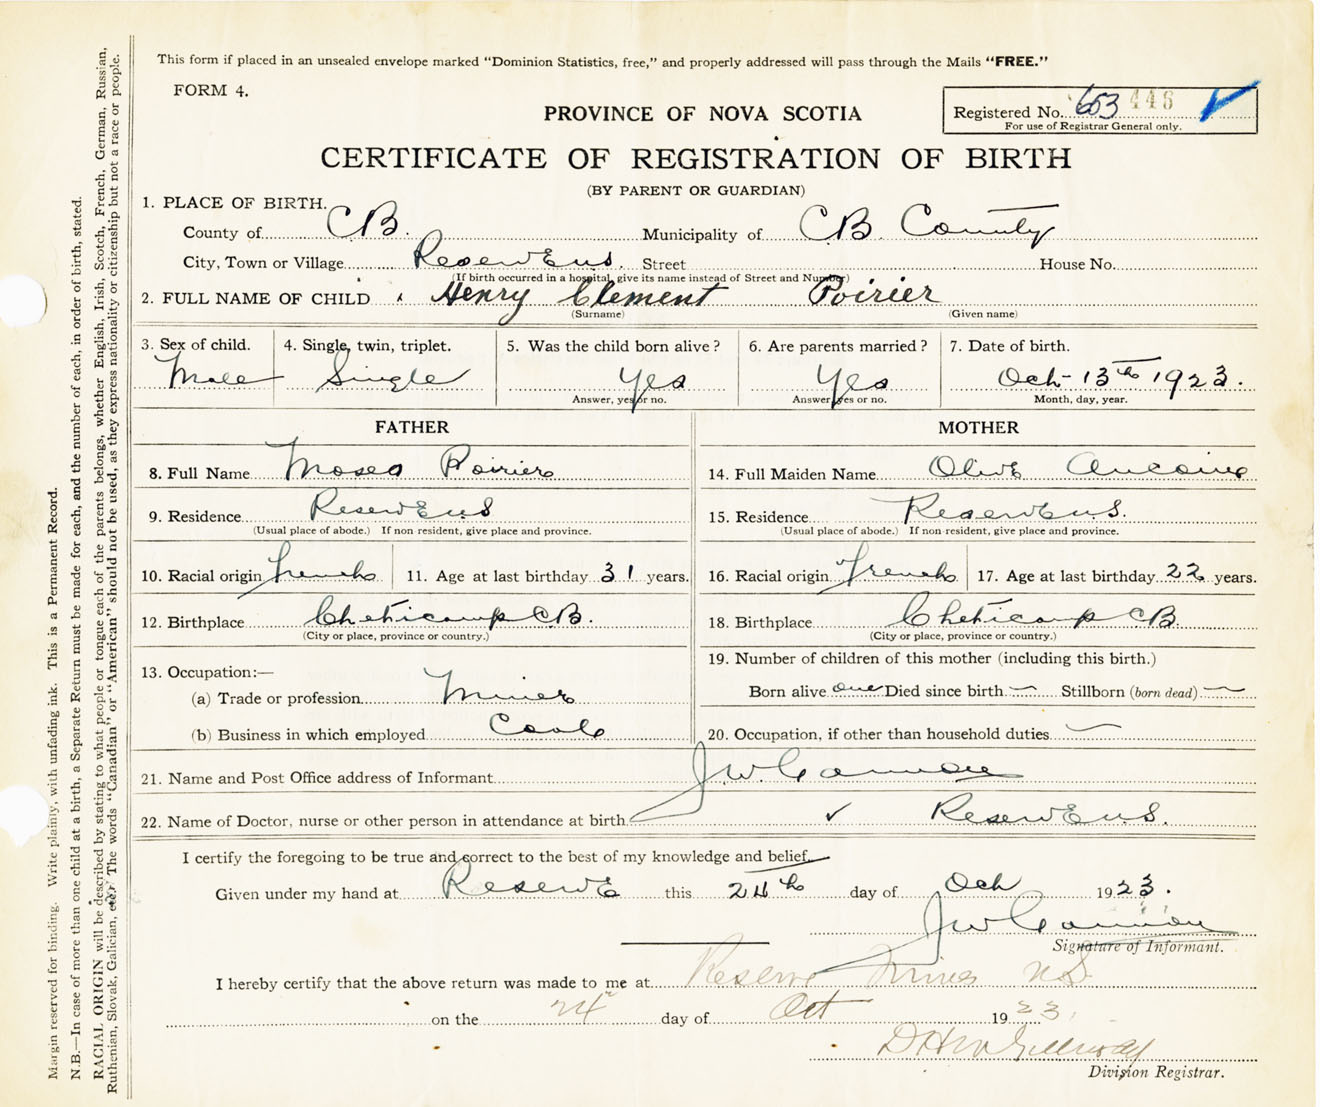 This form if placed in an unsealed envelope marked "Dominion Statistics, free," and properly addressed will pass through the Mails "FREE."
FORM 4.
Registered No. 653 446
For use of Registrar General only.
PROVINCE OF NOVA SCOTIA
CERTIFICATE OF REGISTRATION OF BIRTH
(BY PARENT OR GUARDIAN)
1. PLACE OF BIRTH.
County of CB. Municipality of CB. County
City, Town or Village Reserve N.S. Street House No.
(If birth occurred in a hospital, give its name instead of Street and Number)
2. FULL NAME OF CHILD Henry Clement Poirier
(Surname) (Given name)
3. Sex of child. 4. Single, twin, triplet. 5. Was the child born alive? 6. Are parents married? 7. Date of birth.
Male Single Yes Yes Oct 13th 1923.
Answer, yes or no. Answer yes or no. Month, day, year.
FATHER MOTHER
8. Full Name Moses Poirier 14. Full Maiden Name Olive Aucoin
9. Residence Reserve N.S 15. Residence Reserve N.S.
(Usual place of abode.) If non resident, give place and province. (Usual place of abode.) If non-resident, give place and province.
10. Racial origin French 11. Age at last birthday 31 years. 16. Racial origin French 17. Age at last birthday 22 years.
12. Birthplace Cheticamp CB. 18. Birthplace Cheticamp CB.
(City or place, province or country.) (City or place, province or country.)
13. Occupation:— 19. Number of children of this mother (including this birth.)
(a) Trade or profession Miner Born alive one Died since birth — Stillborn (born dead) —
(b) Business in which employed Coal 20. Occupation, if other than household duties —
21. Name and Post Office address of Informant J W
22. Name of Doctor, nurse or other person in attendance at birth ✓ Reserve N.S.
I certify the foregoing to be true and correct to the best of my knowledge and belief.
Given under my hand at Reserve this 24th day of Oct 1923.
J W
Signature of Informant.
I hereby certify that the above return was made to me at Reserve Mines NS
on the 24" day of Oct 1923.
Division Registrar.
Margin reserved for binding. Write plainly, with unfading ink. This is a Permanent Record.
N.B.—In case of more than one child at a birth, a Separate Return must be made for each, and the number of each, in order of birth, stated.
RACIAL ORIGIN will be described by stating to what people or tongue each of the parents belongs, whether English, Irish, Scotch, French, German, Russian,
Ruthenian, Slovak, Galician, etc. The words "Canadian" or "American" should not be used, as they express nationality or citizenship but not a race or people.